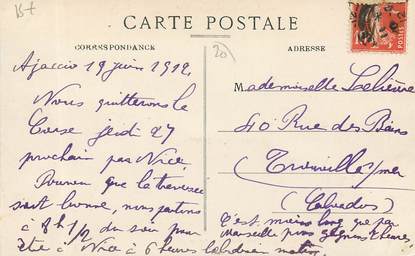 CARTE POSTALE
CORRESPONDANCE
ADRESSE
Ajaccio 19 juin 1912,
Nous quitterons la
Corse jeudi 27
prochain par Nice.
que la traversée
soit bonne, nous partons
à 8 h 1/2 du soir pour
être à Nice à 6 heures
Mademoiselle Lelièvre
40 Rue des Bains
Trouville s/mer
(Calvados)
C'est moins long que par
Marseille heures,